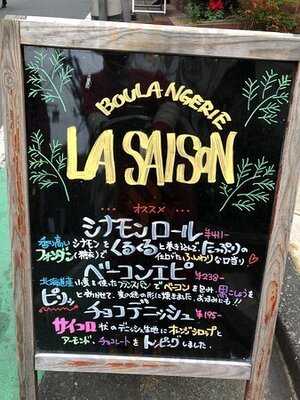 BOULANGERIE
LA SAISON
... オススメ ...
シナモンロール ¥411-
香り高いシナモンをくるくると巻き込んで、たっぷりの
フォンダン(糖衣)で仕上げたふんわりなひと品
ベーコンエピ ¥238-
北海道産小麦を使ったフランスパンでベーコンを包み、黒こしょうを
ピリッと効かせて、麦の穂の形に焼きました。お酒にも!!
チョコデニッシュ ¥195-
サイコロ状のデニッシュ生地にオレンジシロップと
アーモンド、チョコレートをトッピングしました。